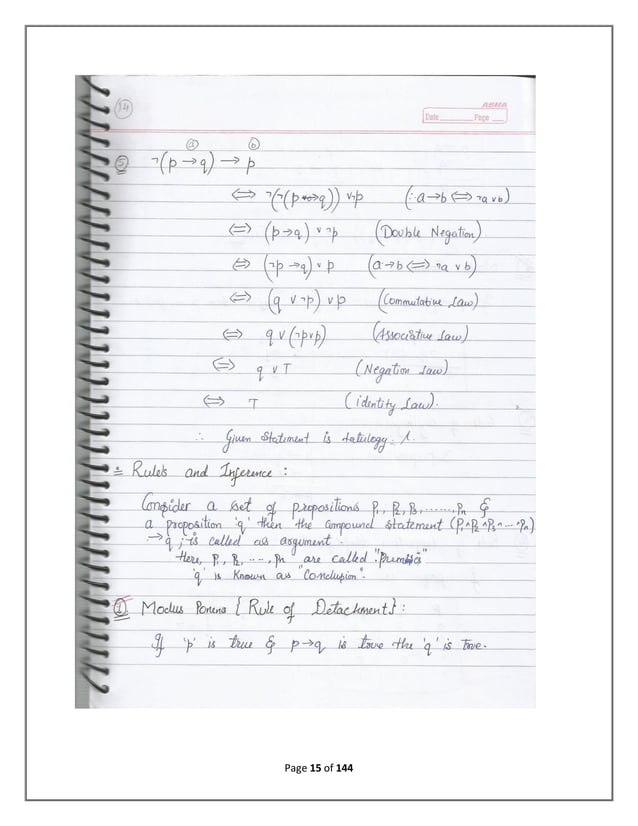 14
ABHA
Date Page
ⓐ ⓑ
⑤ ¬(p → q) → p
⟺ ¬(¬(p → q)) ∨ p (∵ a → b ⟺ ¬a ∨ b)
⟺ (p → q) ∨ ¬p (Double Negation)
⟺ (¬p → q) ∨ p (a → b ⟺ ¬a ∨ b)
⟺ (q ∨ ¬p) ∨ p (Commutative Law)
⟺ q ∨ (¬p ∨ p) (Associative Law)
⟺ q ∨ T (Negation Law)
⟺ T (identity Law).
∴ Given Statement is tatulogy.
Rules and Inference :
Consider a set of propositions P₁, P₂, P₃, ......, Pn &
a proposition 'q' then the compound statement (P₁ ∧ P₂ ∧ P₃ ∧ -- ∧ Pn)
→ q ; is called as argument.
Here, P₁, P₂, ...., Pn are called
'q' is known as "Conclusion".
① Modus Ponens { Rule of Detachment} :
If 'p' is true & p → q is true the 'q' is true.
Page 15 of 144